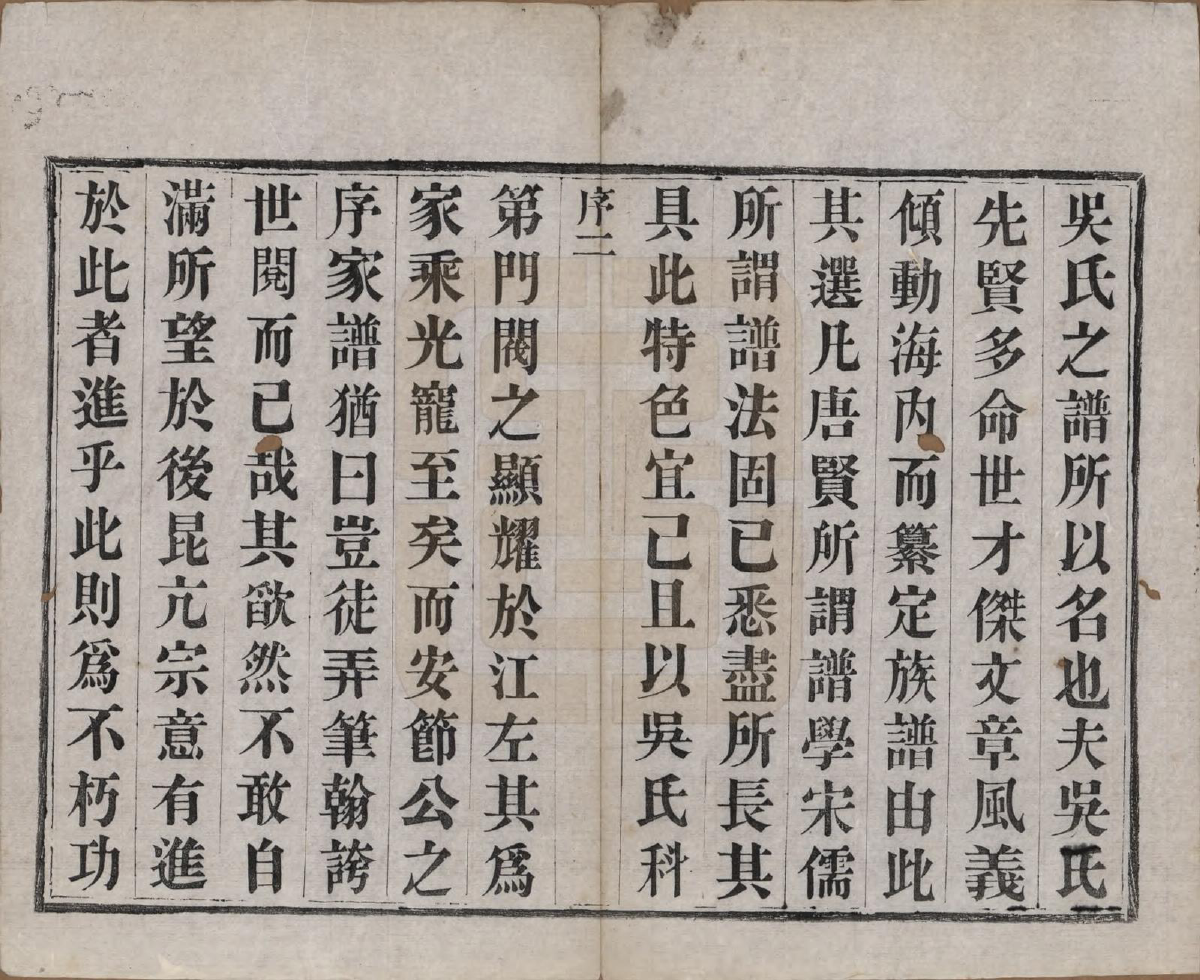 吳氏之譜所以名也夫吳氏
先賢多命世才傑文章風義
傾動海內而纂定族譜由此
其選凡唐賢所謂譜學宋儒
所謂譜法固已悉盡所長其
具此特色宜已且以吳氏科
序二
第門閥之顯耀於江左其爲
家乘光寵至矣而安節公之
序家譜猶曰豈徒弄筆翰誇
世閱而已哉其欿然不敢自
滿所望於後昆亢宗意有進
於此者進乎此則爲不朽功